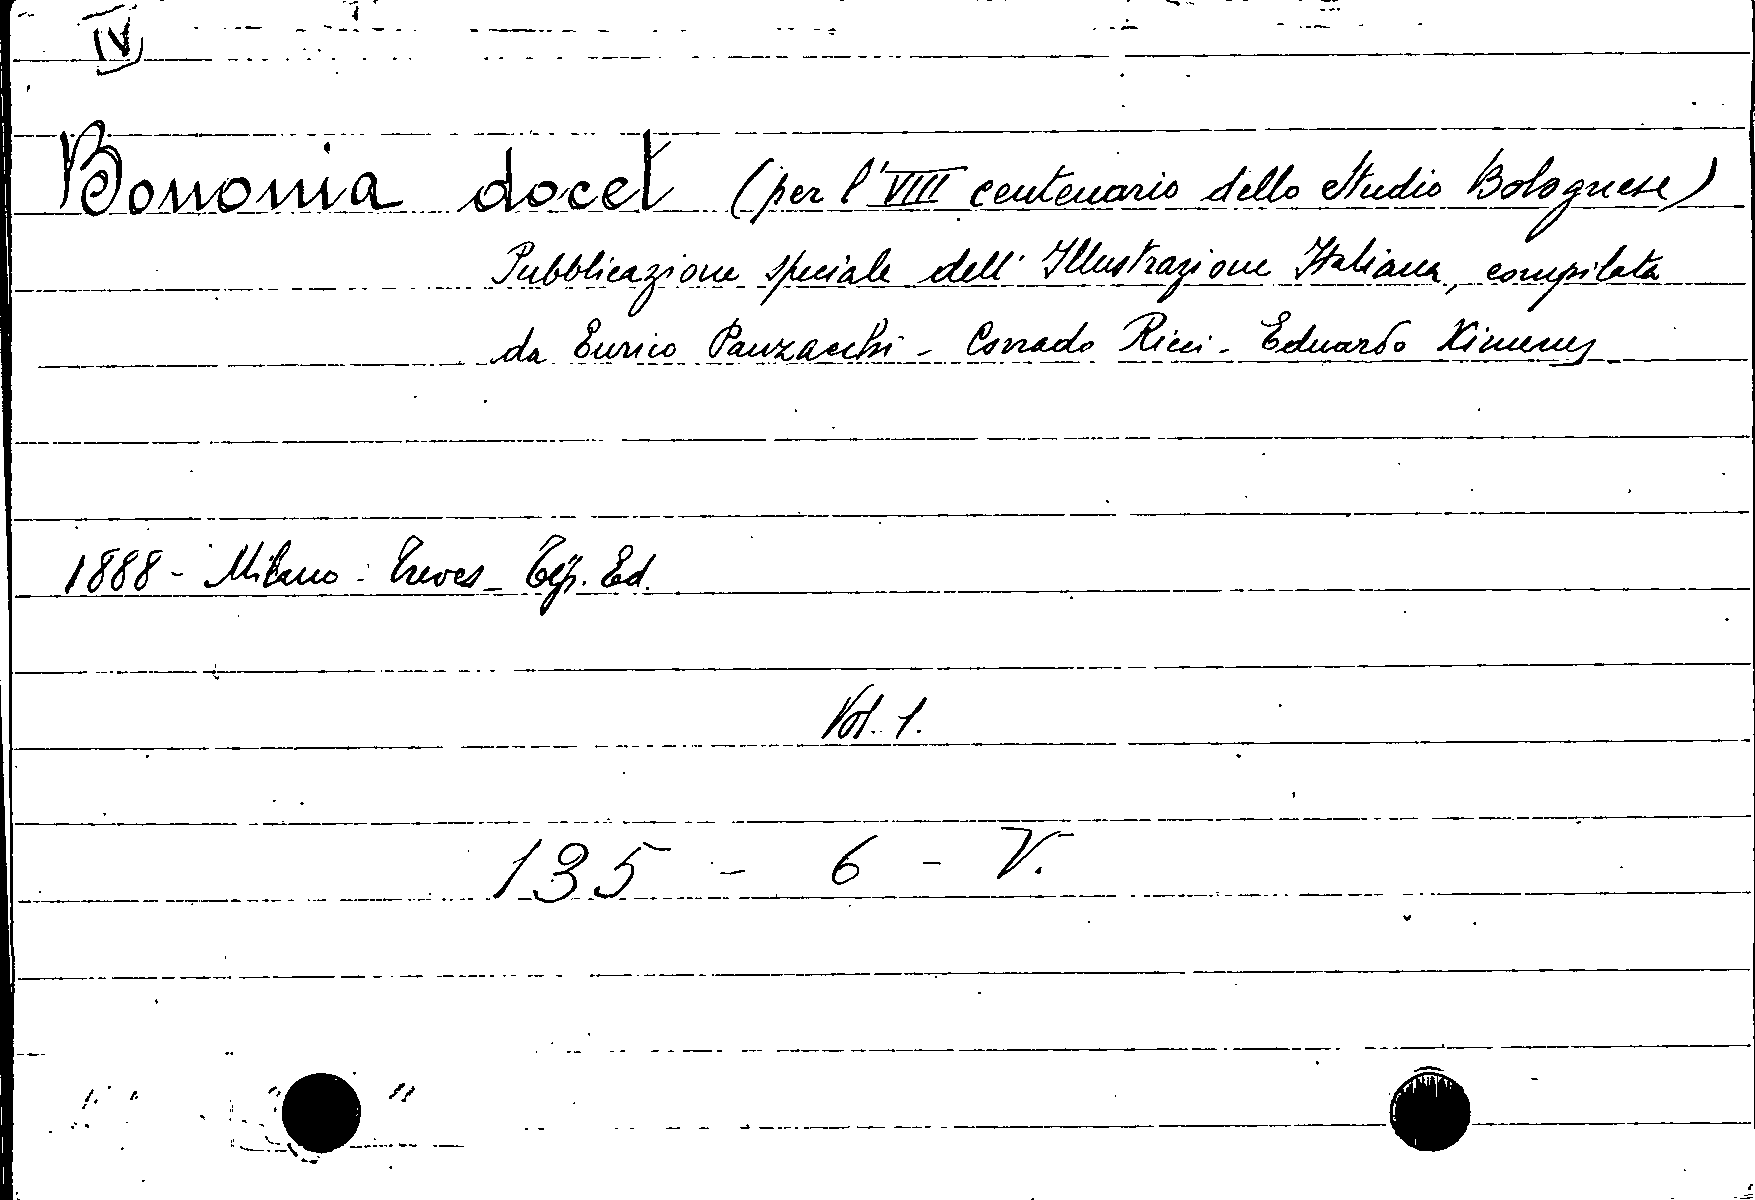 IV
Bononia docet (per l'VIII centenario dello Studio Bolognese)
Pubblicazione speciale dell'Illustrazione Italiana, compilata
da Enrico Panzacchi - Corrado Ricci - Eduardo Ximenes
1888 - Milano - Treves - Tip. Ed.
Vol. 1.
135 - 6 - V.